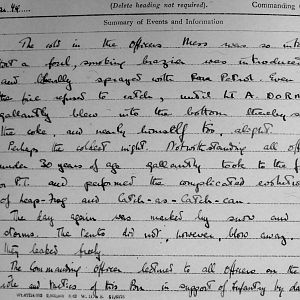 an. 44.....
(Delete heading not required).
Commanding O
Summary of Events and Information
The cold in the Officers Mess was so inte
that a foul, smoking brazier was introduced
and liberally sprayed with Raw Petrol. Even
the fire refused to catch, until Lt A. DORM
gallantly blew into the bottom thereby se
the coke, and nearly himself too, alight.
Perhaps the coldest night. Notwithstanding all off
under 30 years of age gallantly took to the f
for P.T. and performed the complicated evolutio
of leap-frog and Catch-as-Catch-can.
The day again was marked by snow and
storms. The tents did not, however, blow away.
They leaked freely.
The Commanding Officer lectured to all Officers on the
role and tactics of this Bn. in support of Infantry by da